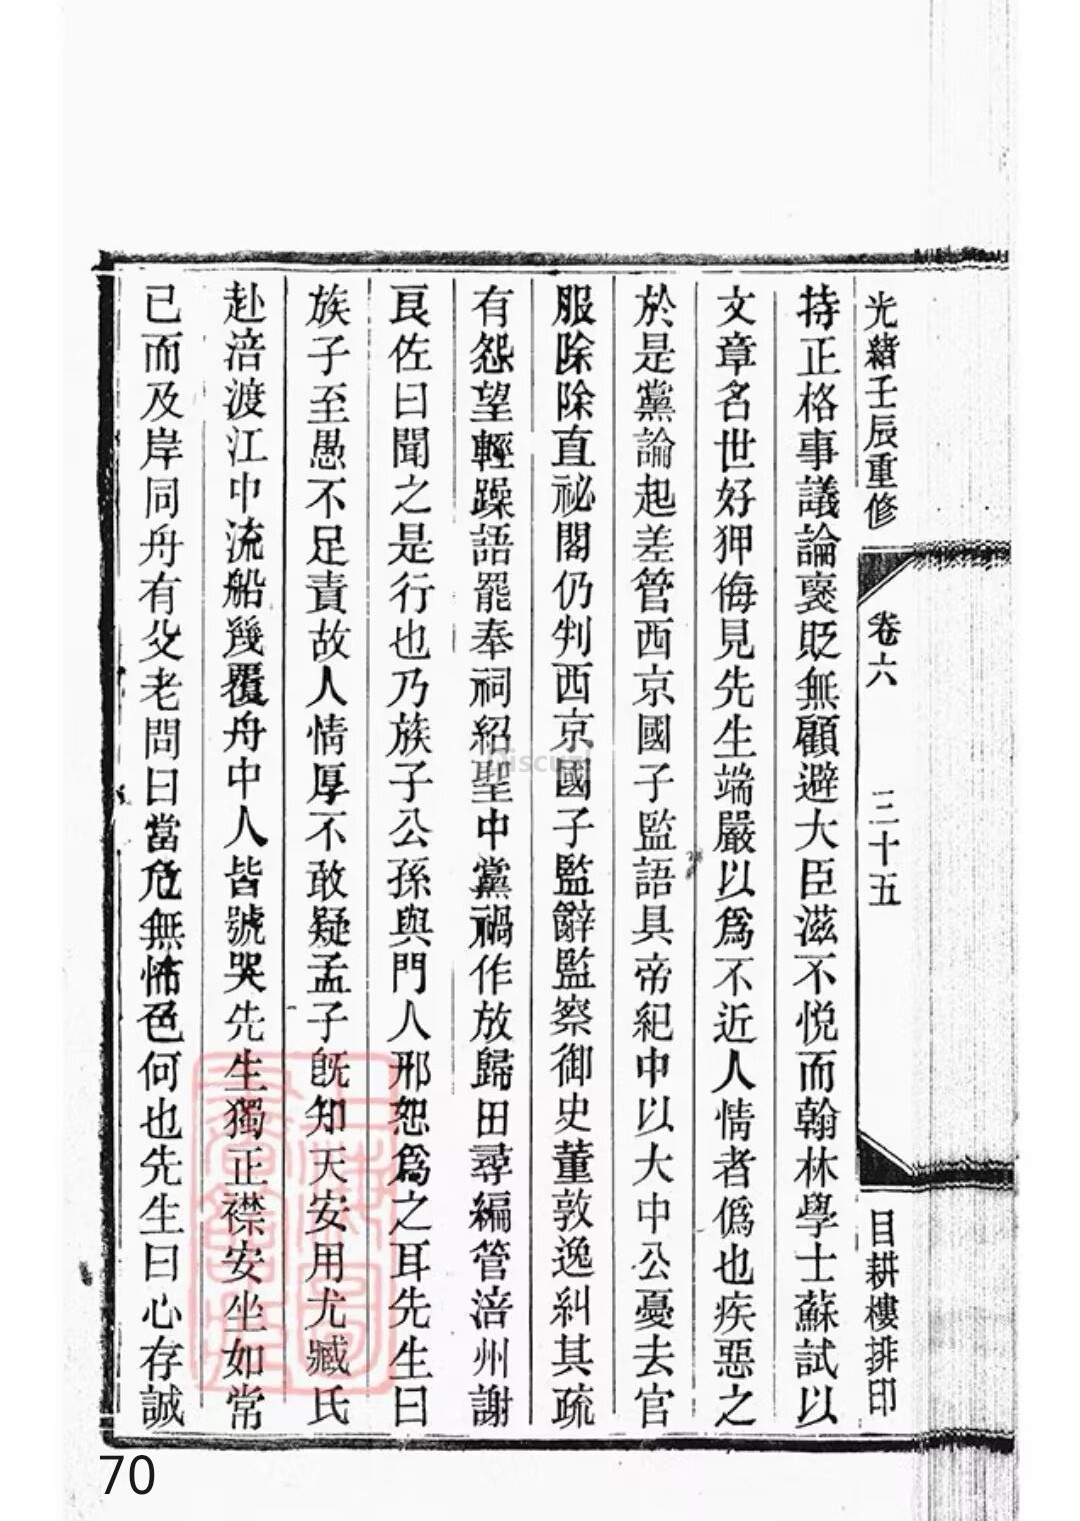 光緒壬辰重修
卷六
三十五
目耕樓排印
持正格事議論襃貶無顧避大臣滋不悅而翰林學士蘇試以
文章名世好狎侮見先生端嚴以爲不近人情者僞也疾惡之
於是黨論起差管西京國子監語具帝紀中以大中公憂去官
服除除直祕閣仍判西京國子監辭監察御史董敦逸糾其疏
有怨望輕躁語罷奉祠紹聖中黨禍作放歸田尋編管涪州謝
良佐曰聞之是行也乃族子公孫與門人邢恕爲之耳先生曰
族子至愚不足責故人情厚不敢疑孟子旣知天安用尤臧氏
赴涪渡江中流船幾覆舟中人皆號哭先生獨正襟安坐如常
已而及岸同舟有父老問曰當危無怖色何也先生曰心存誠
70